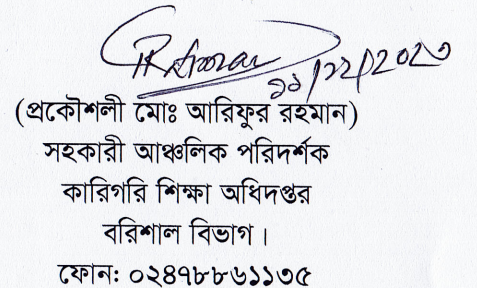 (প্রকৌশলী মোঃ আরিফুর রহমান)
সহকারী আঞ্চলিক পরিদর্শক
কারিগরি শিক্ষা অধিদপ্তর
বরিশাল বিভাগ।
ফোন: ০২৪৭৮৮৬১১৩৫